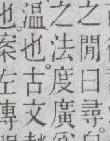 之閒曰尋
之法度廣
溫也古文
也案左傳